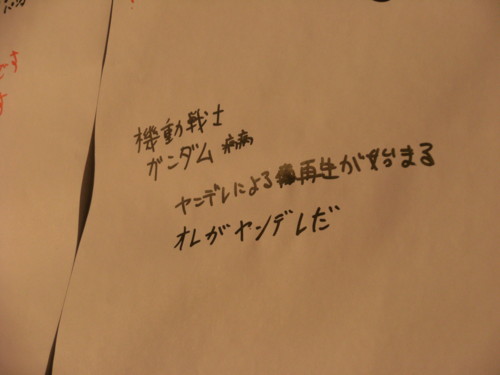 機動戦士
ガンダム 病病
ヤンデレによる再生が始まる
オレがヤンデレだ